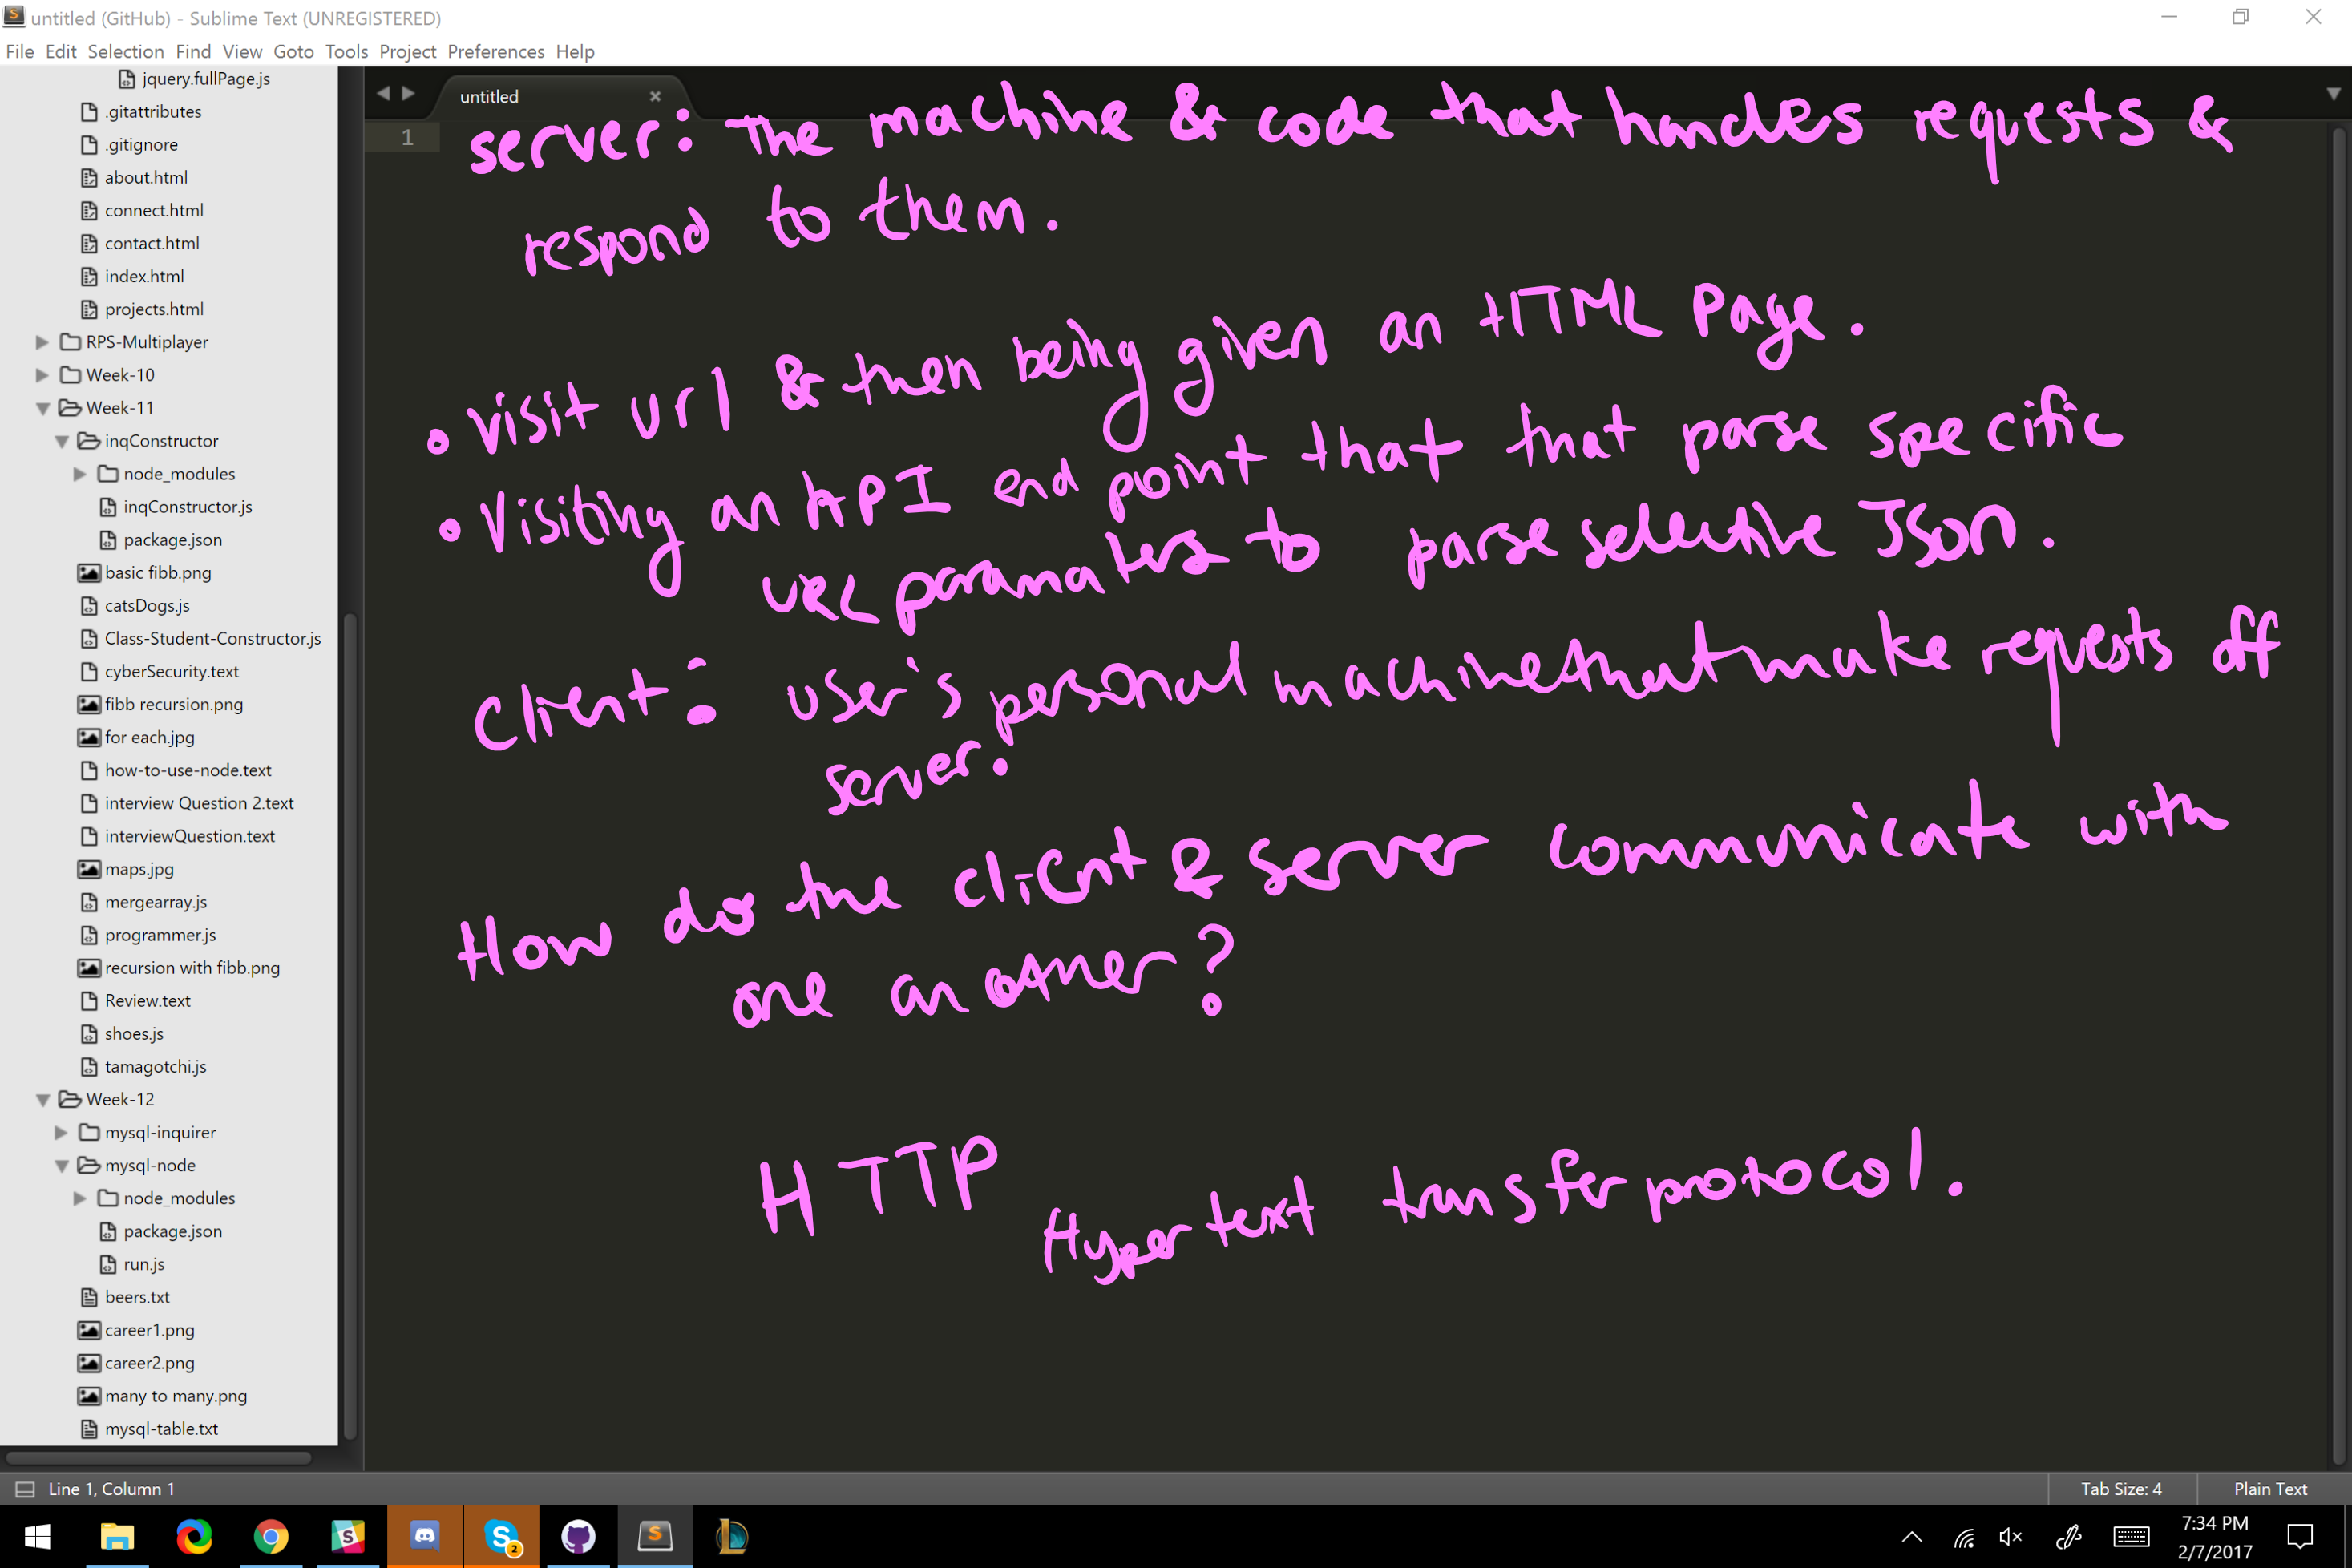 untitled (GitHub) - Sublime Text (UNREGISTERED)
File Edit Selection Find View Goto Tools Project Preferences Help
jquery.fullPage.js
.gitattributes
.gitignore
about.html
connect.html
contact.html
index.html
projects.html
RPS-Multiplayer
Week-10
Week-11
inqConstructor
node_modules
inqConstructor.js
package.json
basic fibb.png
catsDogs.js
Class-Student-Constructor.js
cyberSecurity.text
fibb recursion.png
for each.jpg
how-to-use-node.text
interview Question 2.text
interviewQuestion.text
maps.jpg
mergearray.js
programmer.js
recursion with fibb.png
Review.text
shoes.js
tamagotchi.js
Week-12
mysql-inquirer
mysql-node
node_modules
package.json
run.js
beers.txt
career1.png
career2.png
many to many.png
mysql-table.txt
untitled
1
server: The machine & code that handles requests &
respond to them.
• Visit url & then being given an HTML Page.
• Visiting an API end point that that parse specific
URL paramaters to parse selective JSON.
Client: user's personal machine that make requests off
server.
How do the client & server communicate with
one another?
HTTP Hyper text transfer protocol.
Line 1, Column 1
Tab Size: 4
Plain Text
2
7:34 PM
2/7/2017